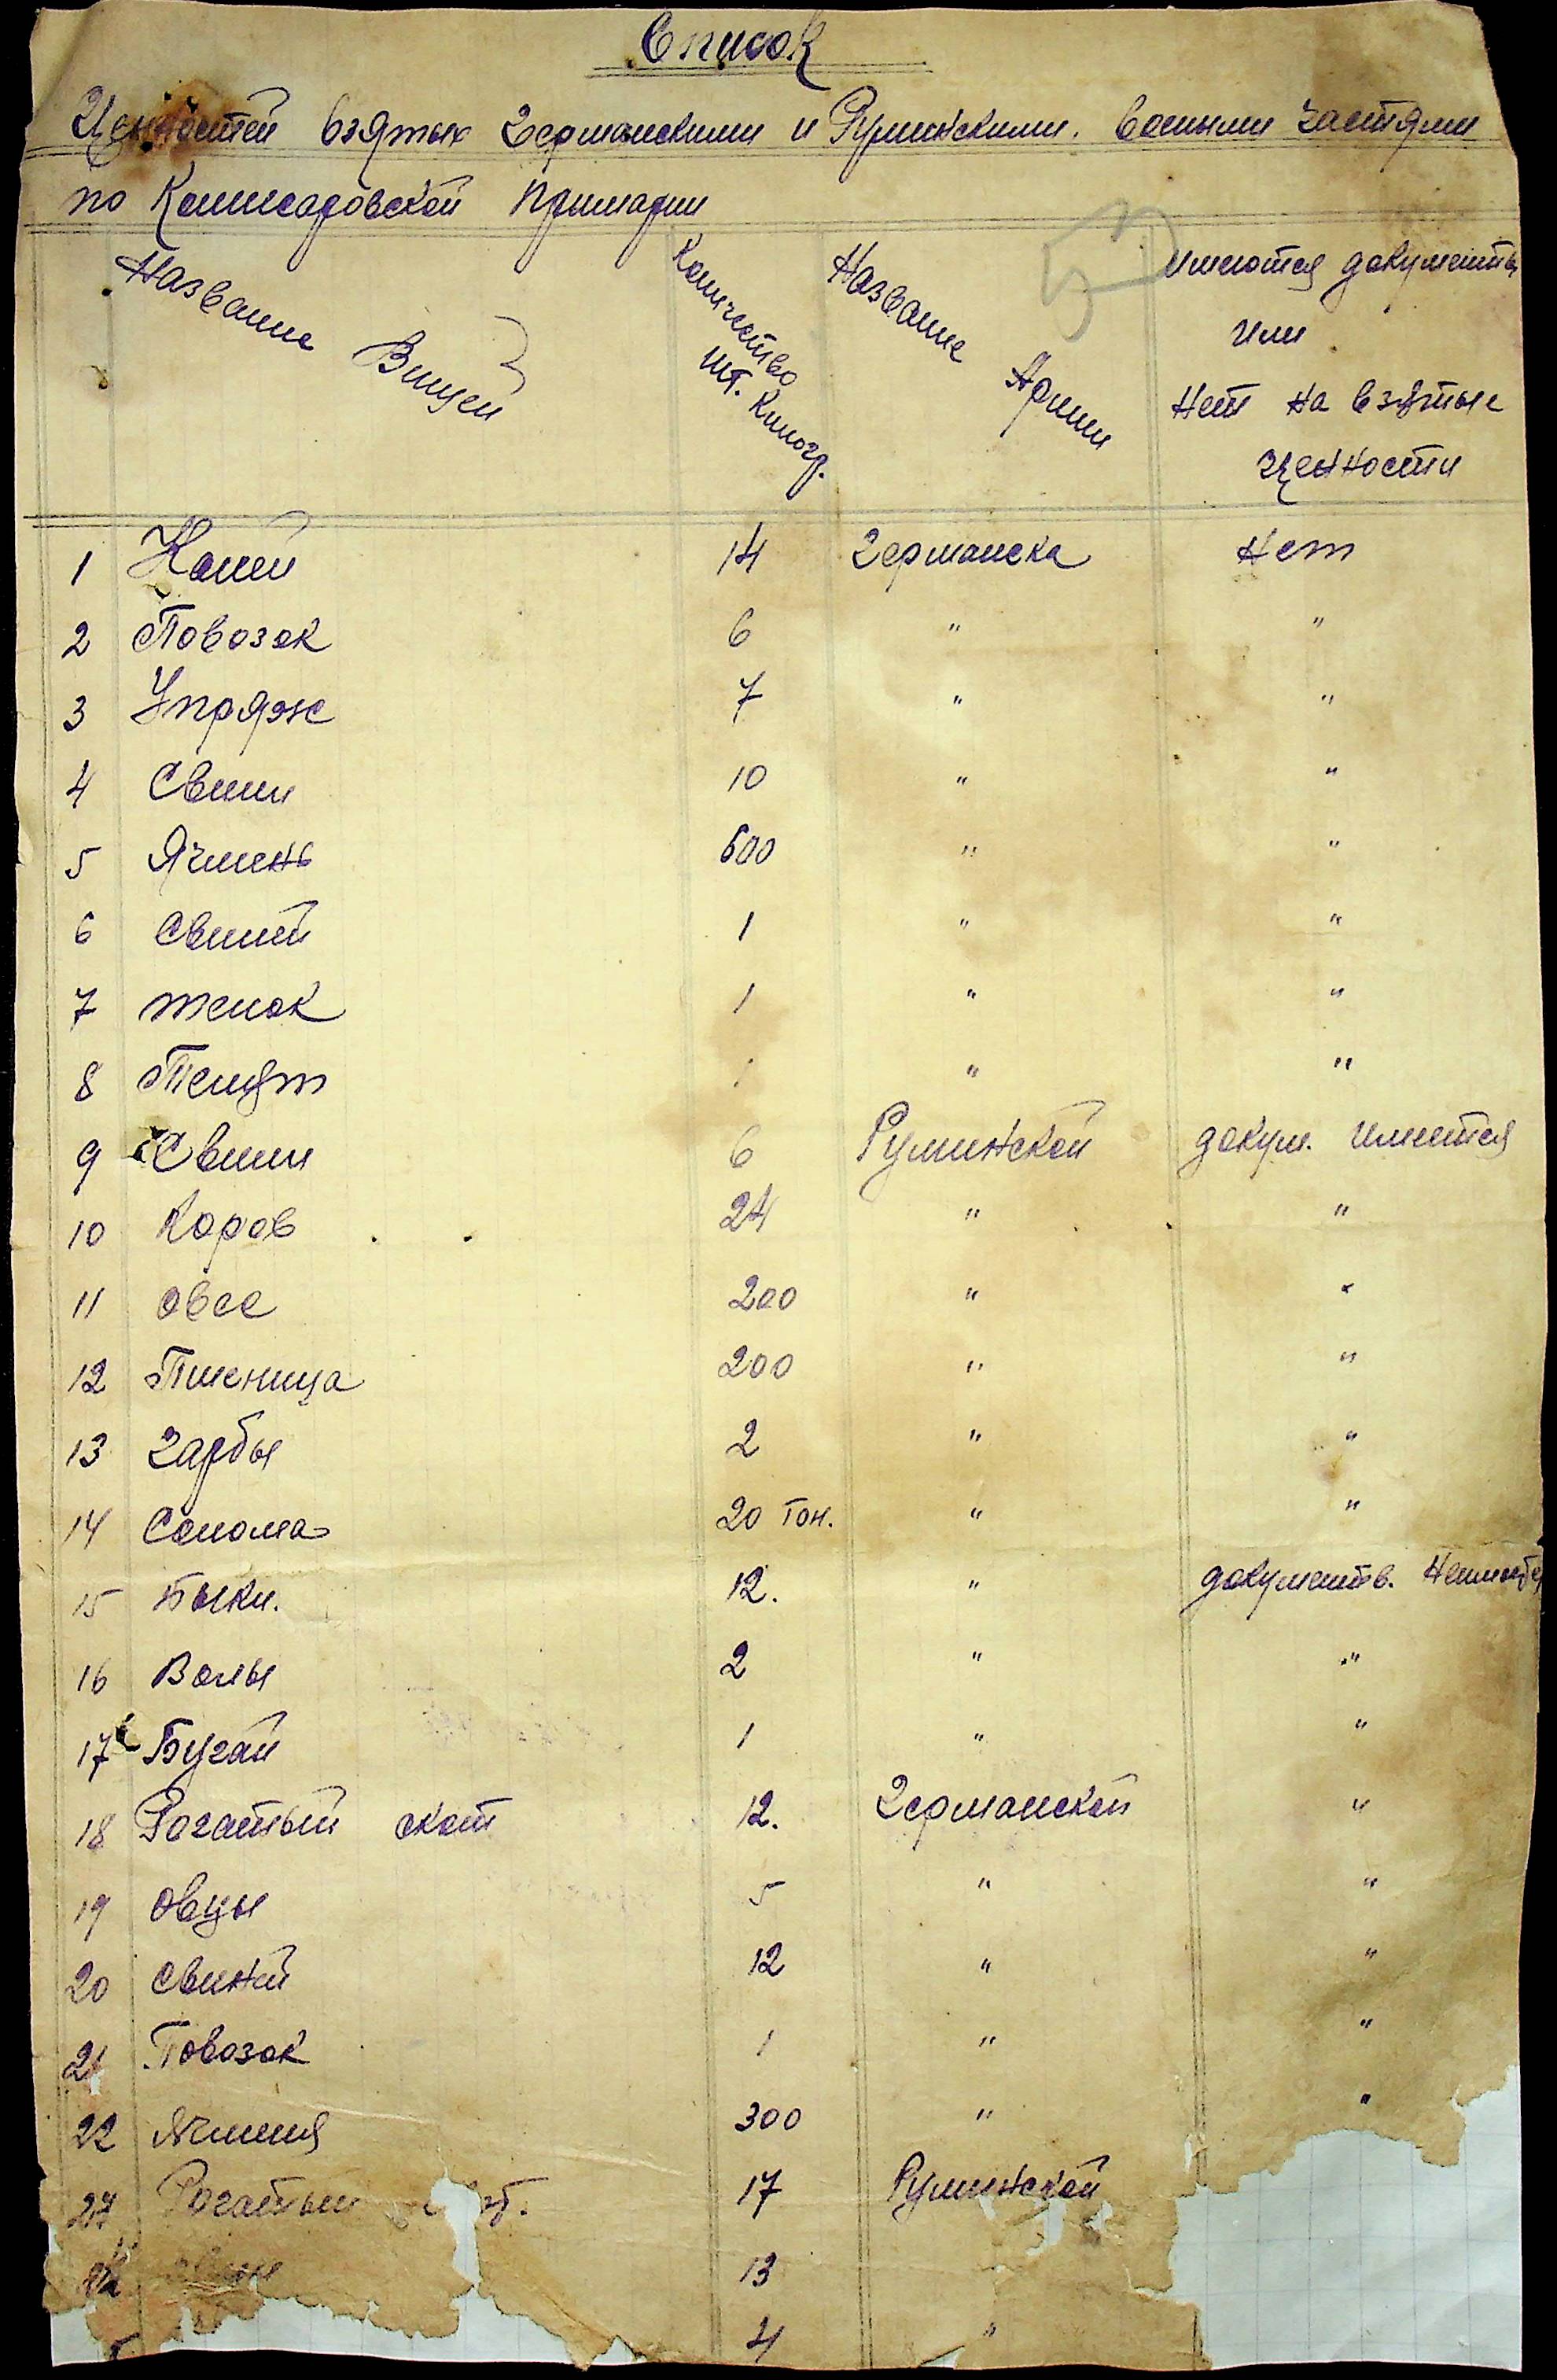 Список
Ценностей взятых Германскими и Руминскими. воеными частями
по Комисаровской примарии
Название Вищей
Количество шт. Килогр.
Название Армии
Имеются документы
или
Нет на взятые
ценности
1 Коней 14 Германска Нет
2 Повозок 6 " "
3 Упряже 7 " "
4 Свини 10 " "
5 Ячмень 600 " "
6 Свиней 1 " "
7 телок 1 " "
8 Телят 1 " "
9 Свини 6 Руминской докум. имеется
10 Коров 24 " "
11 овсе 200 " "
12 Пшеница 200 " "
13 Гарбы 2 " "
14 Солома 20 тон. " "
15 Быки. 12. " документв.
16 Волы 2 " "
17 Бугай 1 " "
18 Рогатый скот 12. Германской "
19 Овцы 5 " "
20 свиней 12 " "
21 Повозок 1 " "
22 Ячменя 300 " "
Рогатый 17 Руминской
13
4 "